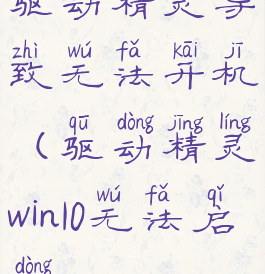 驱动精灵导
zhì wú fǎ kāi jī
致无法开机
qū dòng jīng líng
（驱动精灵
wú fǎ qǐ
win10无法启
dòng